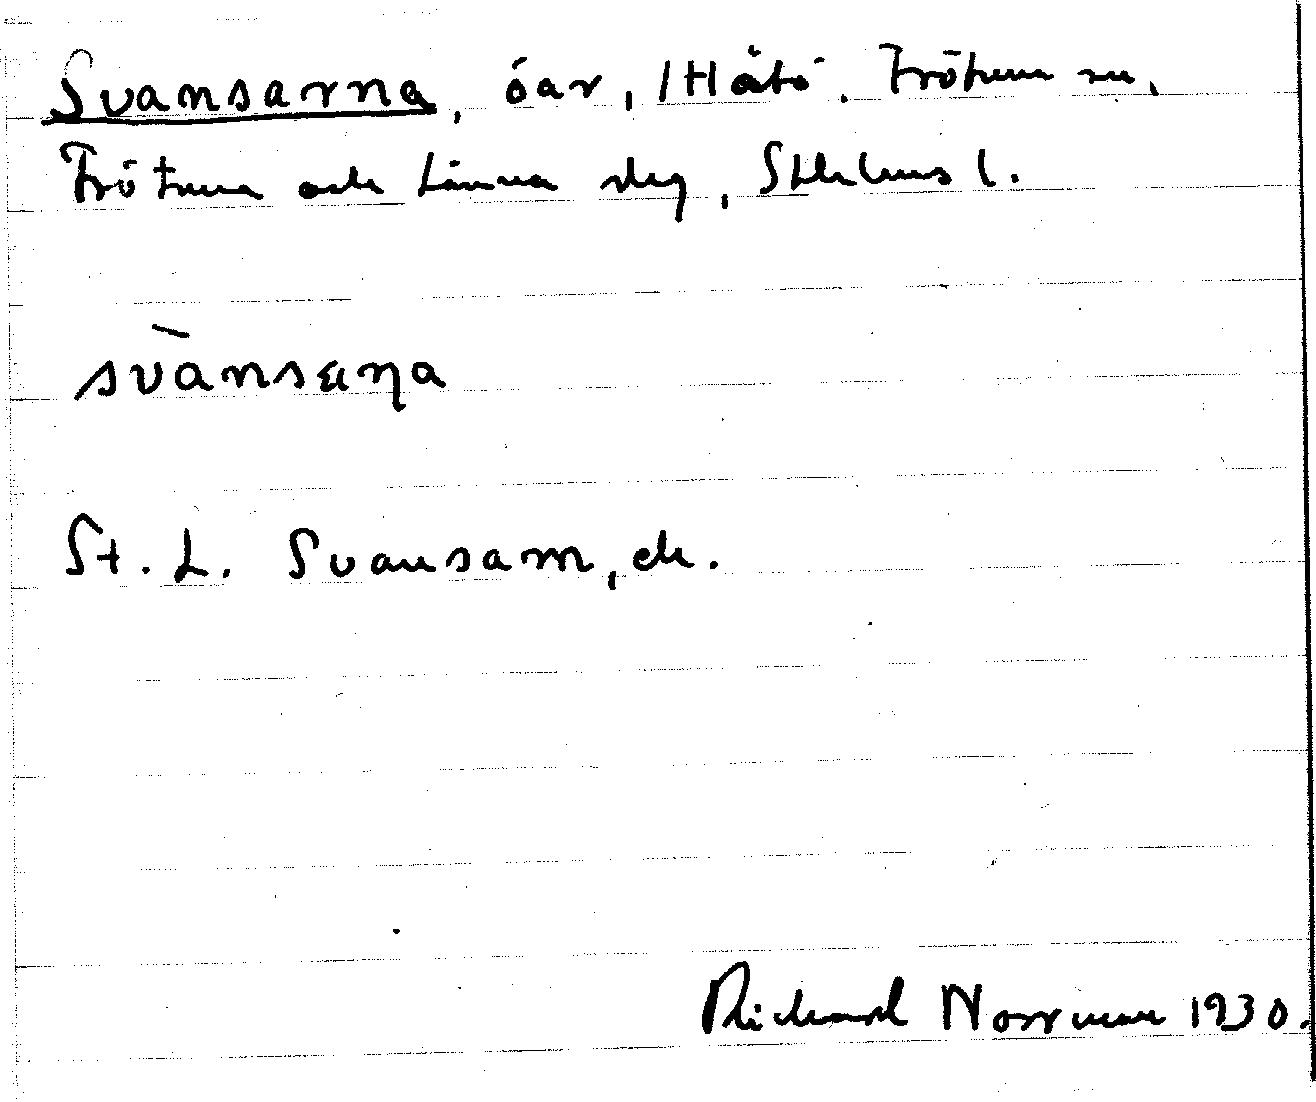 Svansarna, öar, /Håtö. Frötuna sn,
Frötuna och Länna slg, Sthlms l.
svànsaṇa
St. L. Svansarn, ek.
Richard Norrman 1930.